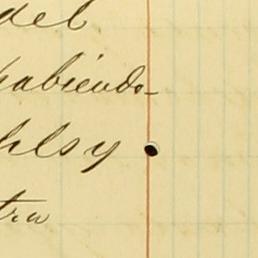 del
habiendo-
hlsy
tra